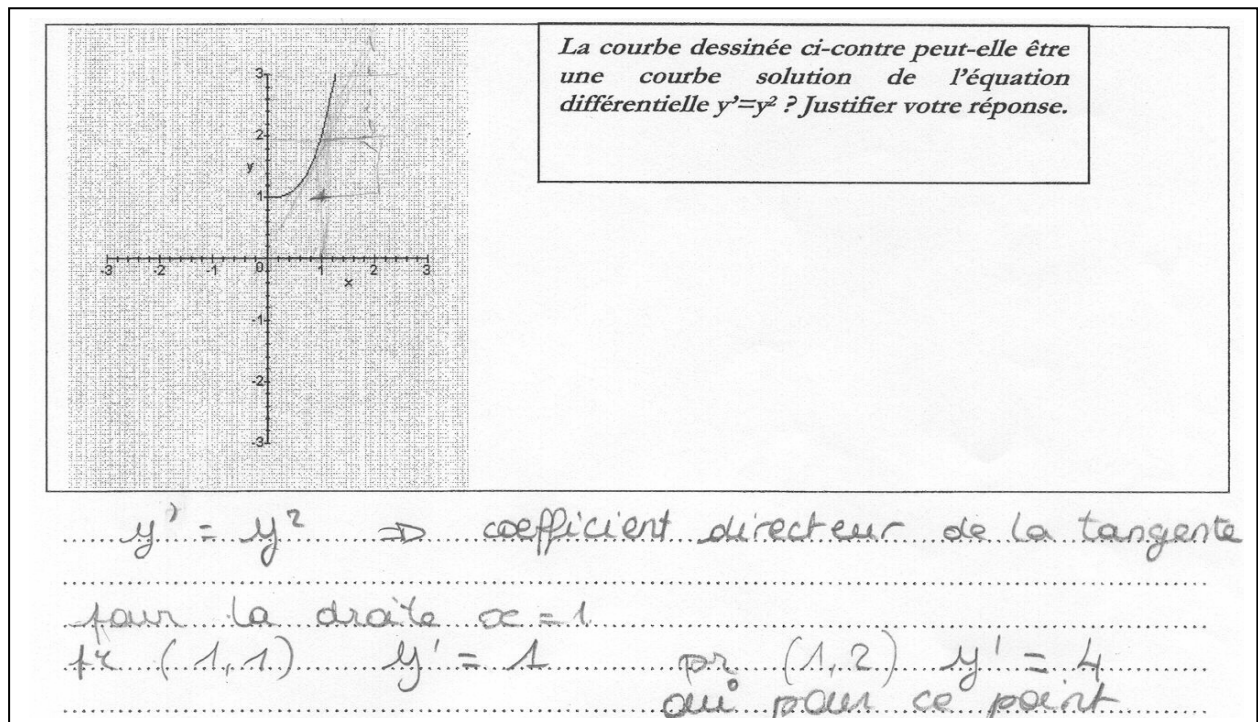 La courbe dessinée ci-contre peut-elle être
une courbe solution de l'équation
différentielle y'=y² ? Justifier votre réponse.
3
2
y
1
-3 -2 -1 0 1 2 3
x
-1
-2
-3
y' = y² => coefficient directeur de la tangente
pour la droite x = 1
pr (1,1) y' = 1 pr (1,2) y' = 4
oui pour ce point